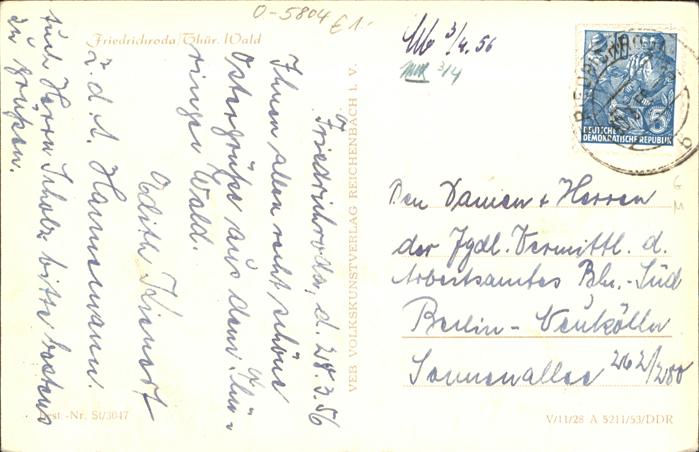 O-5804
€1.-
3/4.56
3/4
Friedrichroda/Thür. Wald
Friedrichroda, d. 28.3.56
Ihnen allen recht schöne
Ostergrüße aus dem Thü-
ringer Wald.
Edith
z. d. A. Hannemann.
Auch Herrn Scholz bitte bestens
zu grüßen.
Best.-Nr. St/3047
VEB VOLKSKUNSTVERLAG REICHENBACH I. V.
DEUTSCHE
DEMOKRATISCHE REPUBLIK
5
Den Damen + Herren
der Jgdl. Vermittl. d.
Arbeitsamtes Bln.-Süd
Berlin-Neukölln
Sonnenallee 262/280
V/11/28 A 5211/53/DDR